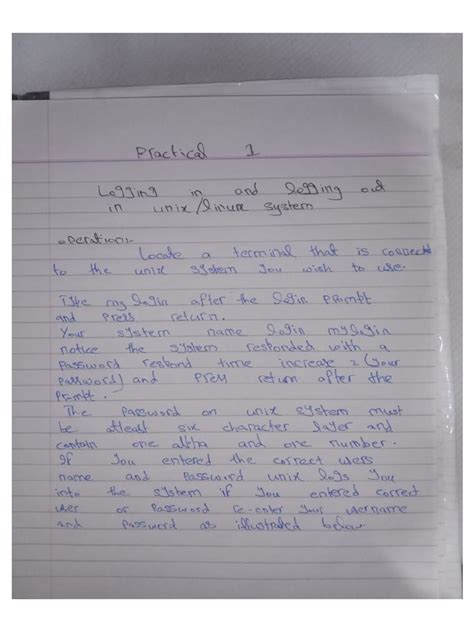 Practical 1
Logging in and logging out
in unix/linux system
operation:-
Locate a terminal that is conected
to the unix system you wish to use.
Type my login after the login prompt
and press return.
Your system name login mylogin
notice the system responded with a
password respond time increate 2 (your
password) and press return after the
Prompt.
The password on unix system must
be atleast six character layer and
contain one alpha and one number.
If you entered the correct users
name and password unix logs you
into the system if you entered correct
user or password re-enter your username
and password as illustrated below